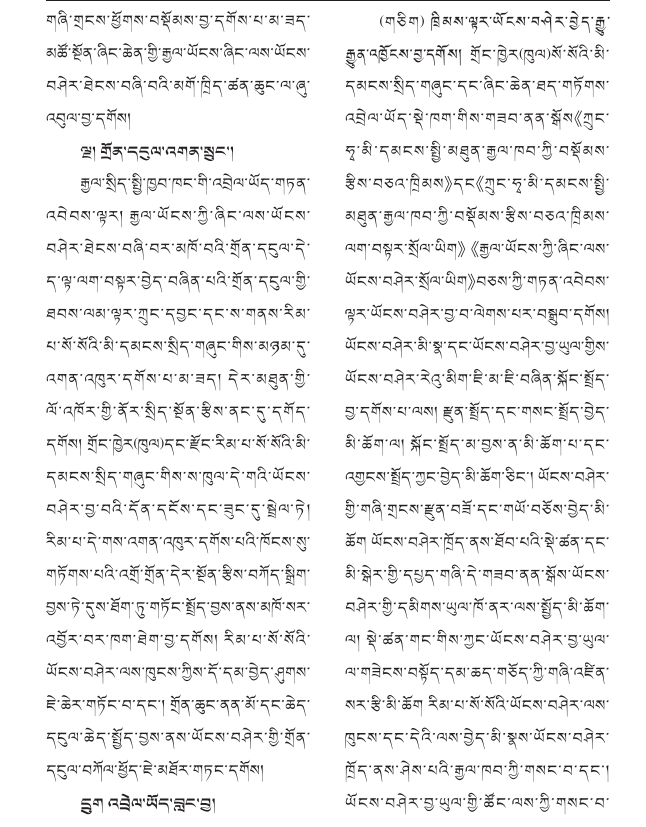 གཞི་གྲངས་ཕྱོགས་བསྡོམས་བྱ་དགོས་པ་མ་ཟད་
མཚོ་སྔོན་ཞིང་ཆེན་གྱི་རྒྱལ་ཡོངས་ཞིང་ལས་ཡོངས་
བཤེར་ཐེངས་བཞི་བའི་མགོ་ཁྲིད་ཚན་ཆུང་ལ་ཞུ་
འབུལ་བྱ་དགོས།
ལྔ། གྲོན་དངུལ་འགན་སྲུང་།
རྒྱལ་སྲིད་སྤྱི་ཁྱབ་ཁང་གི་འབྲེལ་ཡོད་གཏན་
འབེབས་ལྟར། རྒྱལ་ཡོངས་ཀྱི་ཞིང་ལས་ཡོངས་
བཤེར་ཐེངས་བཞི་བར་མཁོ་བའི་གྲོན་དངུལ་དེ་
ད་ལྟ་ལག་བསྟར་བྱེད་བཞིན་པའི་གྲོན་དངུལ་གྱི་
ཐབས་ལམ་ལྟར་ཀྲུང་དབྱང་དང་ས་གནས་རིམ་
པ་སོ་སོའི་མི་དམངས་སྲིད་གཞུང་གིས་མཉམ་དུ་
འགན་འཁུར་དགོས་པ་མ་ཟད། དེར་མཐུན་གྱི་
ལོ་འཁོར་གྱི་ནོར་སྲིད་སྔོན་རྩིས་ནང་དུ་དགོད་
དགོས། གྲོང་ཁྱེར(ཁུལ)དང་རྫོང་རིམ་པ་སོ་སོའི་མི་
དམངས་སྲིད་གཞུང་གིས་ས་ཁུལ་དེ་གའི་ཡོངས་
བཤེར་བྱ་བའི་དོན་དངོས་དང་ཟུང་དུ་སྦྲེལ་ཏེ།
རིམ་པ་དེ་གས་འགན་འཁུར་དགོས་པའི་ཁོངས་སུ་
གཏོགས་པའི་འགྲོ་གྲོན་དེར་སྔོན་རྩིས་བཀོད་སྒྲིག་
བྱས་ཏེ་དུས་ཐོག་ཏུ་གཏོང་སྤྲོད་བྱས་ནས་མཁོ་སར་
འབྱོར་བར་ཁག་ཐེག་བྱ་དགོས། རིམ་པ་སོ་སོའི་
ཡོངས་བཤེར་ལས་ཁུངས་ཀྱིས་དོ་དམ་བྱེད་ཤུགས་
ཇེ་ཆེར་གཏོང་བ་དང་། གྲོན་ཆུང་ནན་མོ་དང་ཆེད་
དངུལ་ཆེད་སྤྱོད་བྱས་ནས་ཡོངས་བཤེར་གྱི་གྲོན་
དངུལ་བཀོལ་ཕྱོད་ཇེ་མཐོར་གཏང་དགོས།
དྲུག འབྲེལ་ཡོད་བླང་བྱ།
(གཅིག) ཁྲིམས་ལྟར་ཡོངས་བཤེར་བྱེད་རྒྱུ་
རྒྱུན་འཁྱོངས་བྱ་དགོས། གྲོང་ཁྱེར(ཁུལ)སོ་སོའི་མི་
དམངས་སྲིད་གཞུང་དང་ཞིང་ཆེན་ཐད་གཏོགས་
འབྲེལ་ཡོད་སྡེ་ཁག་གིས་གཟབ་ནན་སྒོས《ཀྲུང་
ཧྭ་མི་དམངས་སྤྱི་མཐུན་རྒྱལ་ཁབ་ཀྱི་བསྡོམས་
རྩིས་བཅའ་ཁྲིམས》དང《ཀྲུང་ཧྭ་མི་དམངས་སྤྱི་
མཐུན་རྒྱལ་ཁབ་ཀྱི་བསྡོམས་རྩིས་བཅའ་ཁྲིམས་
ལག་བསྟར་སྲོལ་ཡིག》《རྒྱལ་ཡོངས་ཀྱི་ཞིང་ལས་
ཡོངས་བཤེར་སྲོལ་ཡིག》བཅས་ཀྱི་གཏན་འབེབས་
ལྟར་ཡོངས་བཤེར་བྱ་བ་ལེགས་པར་བསྒྲུབ་དགོས།
ཡོངས་བཤེར་མི་སྣ་དང་ཡོངས་བཤེར་བྱ་ཡུལ་གྱིས་
ཡོངས་བཤེར་རེའུ་མིག་ཇི་མ་ཇི་བཞིན་སྐོང་སྤྲོད་
བྱ་དགོས་པ་ལས། རྫུན་སྤྲོད་དང་གསང་སྤྲོད་བྱེད་
མི་ཆོག་ལ། སྐོང་སྤྲོད་མ་བྱས་ན་མི་ཆོག་པ་དང་
འགྱངས་སྤྲོད་ཀྱང་བྱེད་མི་ཆོག་ཅིང་། ཡོངས་བཤེར་
གྱི་གཞི་གྲངས་རྫུན་བཟོ་དང་གཡོ་བཅོས་བྱེད་མི་
ཆོག ཡོངས་བཤེར་ཁྲོད་ནས་ཐོབ་པའི་སྡེ་ཚན་དང་
མི་སྒེར་གྱི་དཔྱད་གཞི་དེ་གཟབ་ནན་སྒོས་ཡོངས་
བཤེར་གྱི་དམིགས་ཡུལ་ཁོ་ནར་ལས་སྤྱོད་མི་ཆོག་
ལ། སྡེ་ཚན་གང་གིས་ཀྱང་ཡོངས་བཤེར་བྱ་ཡུལ་
ལ་གཟེངས་བསྟོད་དམ་ཆད་གཅོད་ཀྱི་གཞི་འཛིན་
སར་རྩི་མི་ཆོག རིམ་པ་སོ་སོའི་ཡོངས་བཤེར་ལས་
ཁུངས་དང་དེའི་ལས་བྱེད་མི་སྣས་ཡོངས་བཤེར་
ཁྲོད་ནས་ཤེས་པའི་རྒྱལ་ཁབ་ཀྱི་གསང་བ་དང་།
ཡོངས་བཤེར་བྱ་ཡུལ་གྱི་ཚོང་ལས་ཀྱི་གསང་བ་